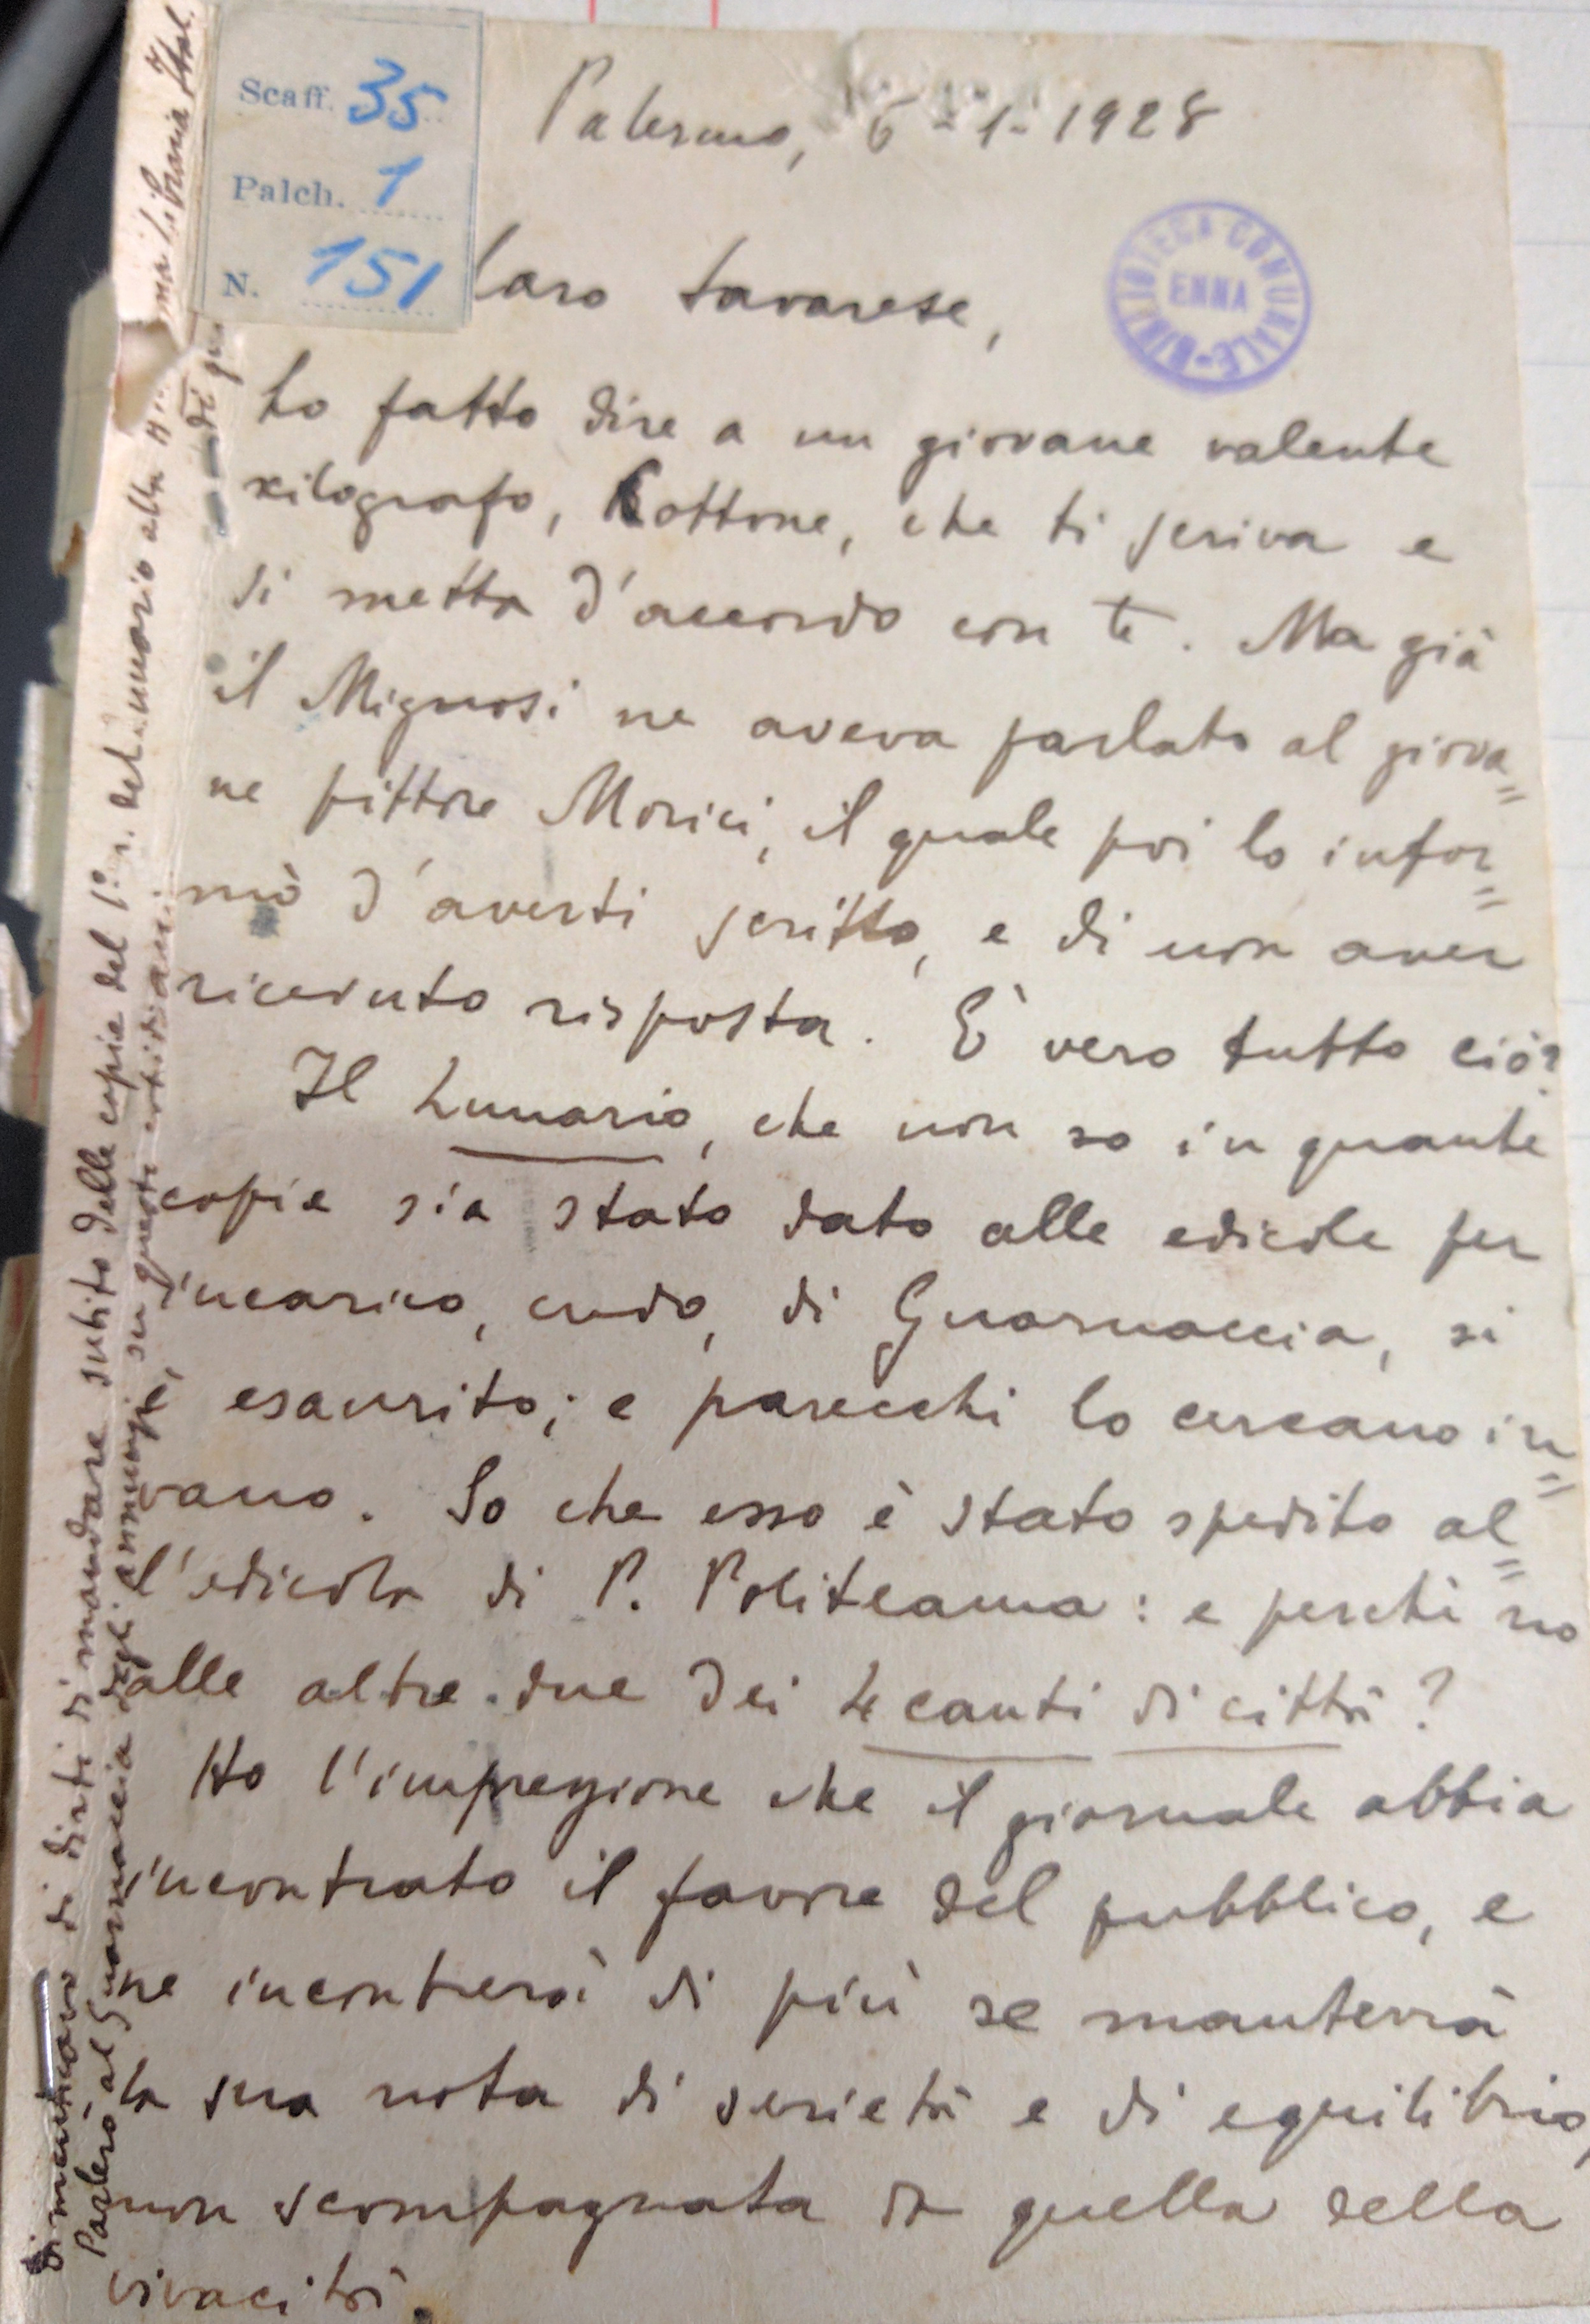 Scaff. 35
Palch. 1
N. 151
Palermo, 6-1-1928
BIBLIOTECA COMUNALE
ENNA
Caro Savarese,
ho fatto dire a un giovane valente
xilografo, Cottone, che ti scriva e
si metta d'accordo con te. Ma già
il Mignosi ne aveva parlato al giova=
ne pittore Morici, il quale poi lo infor=
mò d'averti scritto, e di non aver
ricevuto risposta. È vero tutto ciò?
Il Lunario, che non so in quante
copie sia stato dato alle edicole per
incarico, credo, di Guarnaccia, si
è esaurito; e parecchi lo cercano in=
vano. So che esso è stato spedito al=
l'edicola di P. Politeama: e perché no
alle altre due dei 4 canti di città?
Ho l'impressione che il giornale abbia
incontrato il favore del pubblico, e
ne incontrerà di più se manterrà
la sua nota di serietà e di equilibrio,
non scompagnata da quella della
vivacità.
Dimenticavo di dirti di mandare subito delle copie del 1° n. del Lunario alla libreria Ital.
Parlerò al Guarnaccia degli annunzi su questi quotidiani.
di